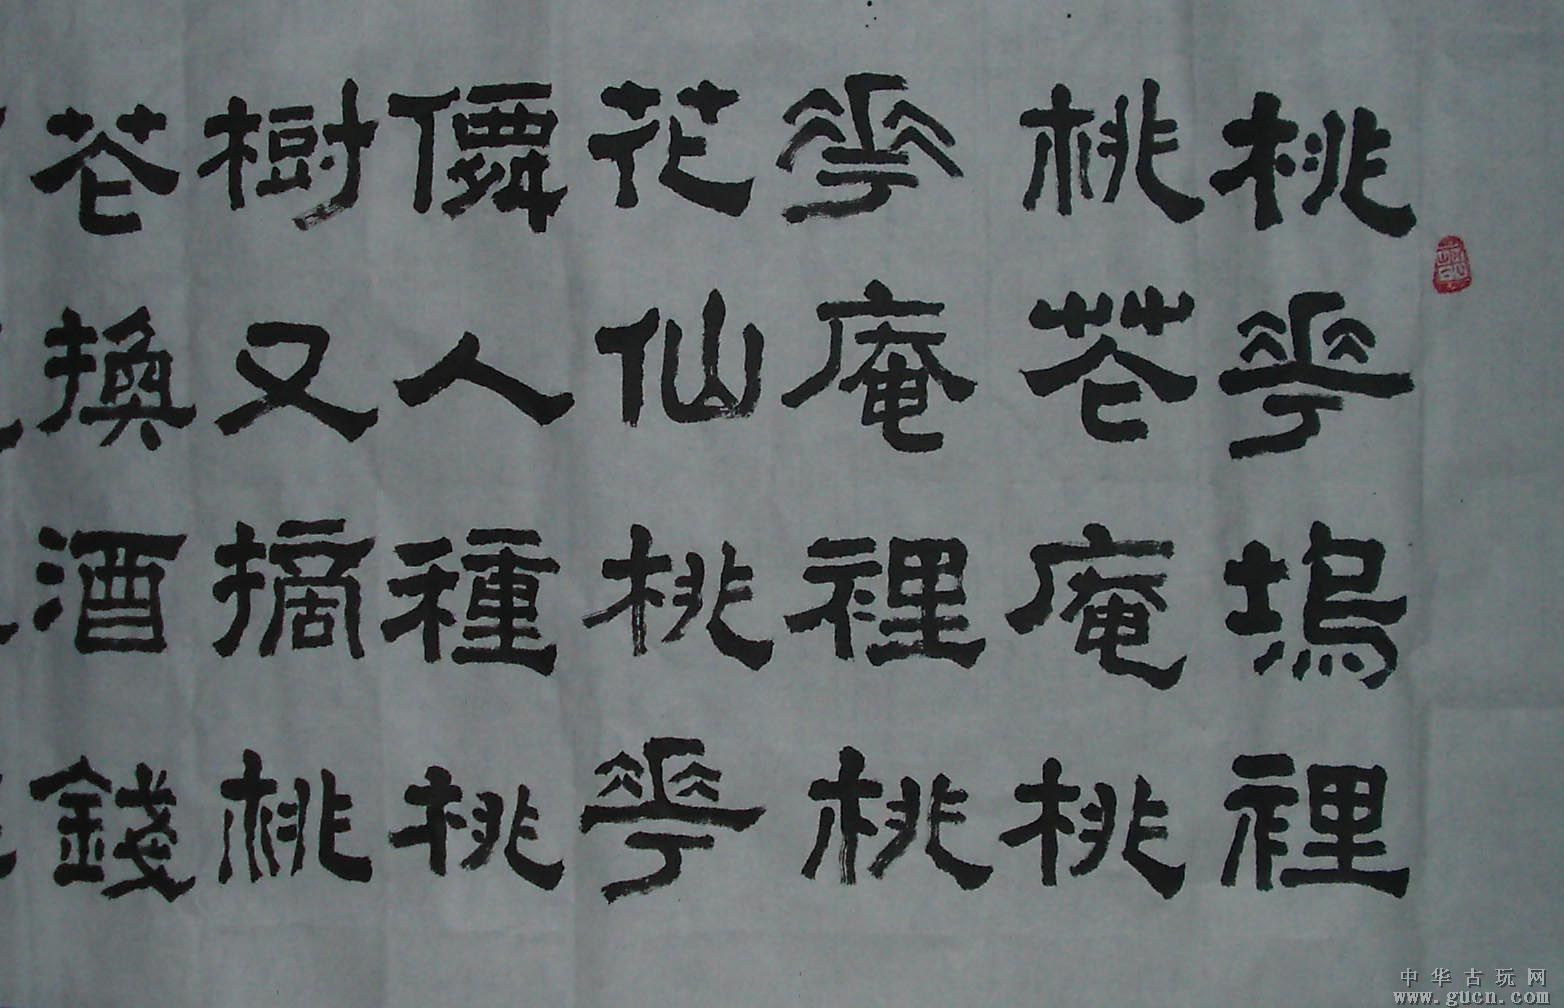 桃華塢裡
桃花庵桃
華庵裡桃
花仙桃華
僊人種桃
樹又摘桃
花換酒錢
中华古玩网
www.gucn.com